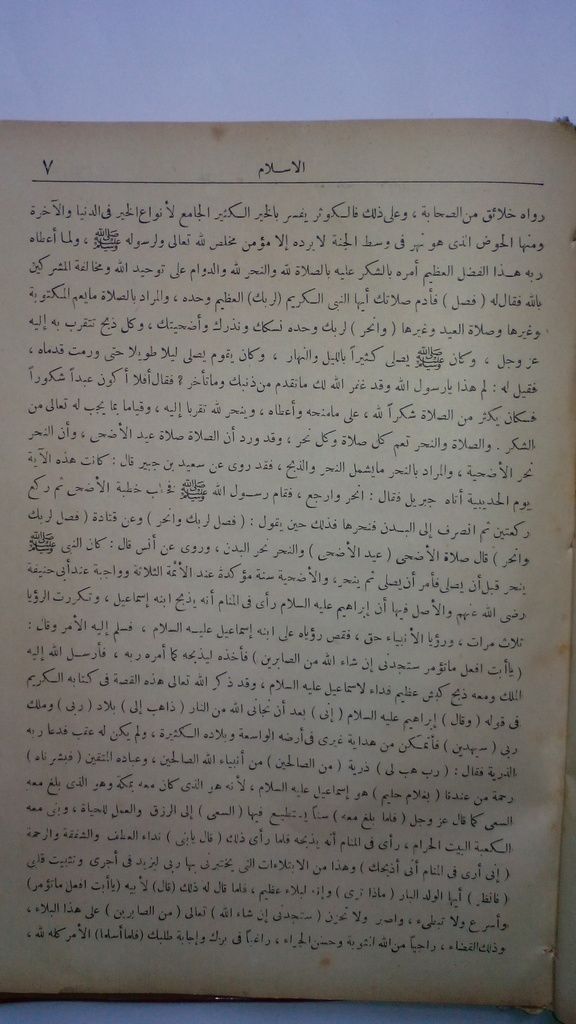 الاسلام ٧
رواه خلائق من الصحابة ، وعلى ذلك فالكوثر يفسر بالخير الكثير الجامع لأنواع الخير فى الدنيا والآخرة
ومنها الحوض الذى هو نهر فى وسط الجنة لا يرده إلا مؤمن مخلص لله تعالى ولرسوله ﷺ ، ولما أعطاه
ربه هذا الفضل العظيم أمره بالشكر عليه بالصلاة لله والنحر لله والدوام على توحيد الله ومخالفة المشركين
بالله فقال له ( فصل ) فأدم صلاتك أيها النبى الكريم ( لربك ) العظيم وحده ، والمراد بالصلاة ما يعم المكتوبة
وغيرها وصلاة العيد وغيرها ( وانحر ) لربك وحده نسكك ونذرك وأضحيتك ، وكل ذبح تتقرب به إليه
عز وجل ، وكان ﷺ يصلى كثيراً بالليل والنهار ، وكان يقوم يصلى ليلا طويلا حتى ورمت قدماه ،
فقيل له : لم هذا يارسول الله وقد غفر الله لك ماتقدم من ذنبك وماتأخر ؟ فقال أفلا أكون عبداً شكوراً
فكان يكثر من الصلاة شكراً لله ، على مامنحه وأعطاه ، وينحر لله تقربا إليه ، وقياما بما يجب له تعالى من
الشكر . والصلاة والنحر تعم كل صلاة وكل نحر ، وقد ورد أن الصلاة صلاة عيد الأضحى ، وأن النحر
نحر الأضحية ، والمراد بالنحر مايشمل النحر والذبح ، فقد روى عن سعيد بن جبير قال : كانت هذه الآية
يوم الحديبية أتاه جبريل فقال : انحر وارجع ، فقام رسول الله ﷺ فخطب خطبة الأضحى ثم ركع
ركعتين ثم انصرف إلى البدن فنحرها فذلك حين يقول : ( فصل لربك وانحر ) وعن قتادة ( فصل لربك
وانحر ) قال صلاة الأضحى ( عيد الأضحى ) والنحر نحر البدن ، وروى عن أنس قال : كان النبى ﷺ
ينحر قبل أن يصلى فأمر أن يصلى ثم ينحر، والأضحية سنة مؤكدة عند الأئمة الثلاثة وواجبة عند أبى حنيفة
رضى الله عنهم والأصل فيها أن إبراهيم عليه السلام رأى فى المنام أنه يذبح ابنه إسماعيل ، وتكررت الرؤيا
ثلاث مرات ، ورؤيا الأنبياء حق ، فقص رؤياه على ابنه إسماعيل عليه السلام ، فسلم إليه الأمر وقال :
( ياأبت افعل ماتؤمر ستجدنى إن شاء الله من الصابرين ) فأخذه ليذبحه كما أمره ربه ، فأرسل الله إليه
الملك ومعه ذبح كبش عظيم فداء لاسماعيل عليه السلام ، وقد ذكر الله تعالى هذه القصة فى كتابه الكريم
فى قوله ( وقال ) إبراهيم عليه السلام ( إنى ) بعد أن نجانى الله من النار ( ذاهب إلى ) بلاد ( ربى ) وملك
ربى ( سيهدين ) فأتمكن من هداية غيرى فى أرضه الواسعة وبلاده الكثيرة ، ولم يكن له عقب فدعا ربه
الذرية فقال : ( رب هب لى ) ذرية ( من الصالحين ) من أنبياء الله الصالحين، وعباده المتقين ( فبشرناه )
رحمة من عندنا ( بغلام حليم ) هو إسماعيل عليه السلام ، لأنه هو الذى كان معه بمكة وهو الذى بلغ معه
السعى كما قال عز وجل ( فلما بلغ معه ) سناً يستطيع فيها ( السعى ) إلى الرزق والعمل للحياة ، وبنى معه
الكعبة البيت الحرام ، رأى فى المنام أنه يذبحه فلما رأى ذلك ( قال يابنى ) نداء العطف والشفقة والرحمة
( إنى أرى فى المنام أنى أذبحك ) وهذا من الابتلاءات التى يختبرنى بها ربى ليزيد فى أجرى وتثبيت قلبى
( فانظر ) أيها الولد البار ( ماذا ترى ) وإنه لبلاء عظيم ، فلما قال له ذلك ( قال ) لأبيه ( ياأبت افعل ماتؤمر)
وأسرع ولا تبطىء ، واصبر ولا تحزن ( ستجدنى إن شاء الله ) تعالى ( من الصابرين ) على هذا البلاء ،
وذلك القضاء ، راجياً من الله المثوبة وحسن الجزاء ، راغباً فى برك وإجابة طلبك ( فلما أسلما) الأمر كله لله ،